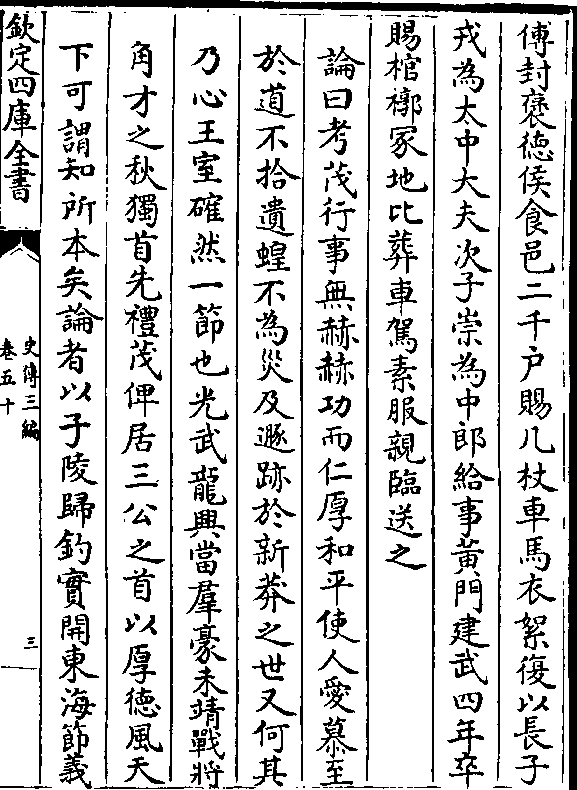 傅封褒徳侯食邑二千户賜几杖車馬衣絮復以長子
戎為太中大夫次子崇為中郎給事黄門建武四年卒
賜棺槨冢地比葬車駕素服親臨送之
論曰考茂行事無赫赫功而仁厚和平使人愛慕至
於道不拾遺蝗不為災及遯跡於新莽之世又何其
乃心王室確然一節也光武龍興當羣豪未靖戰將
角才之秋獨首先禮茂俾居三公之首以厚徳風天
下可謂知所本矣論者以子陵歸釣實開東海節義
欽定四庫全書
史傳三編
卷五十
三